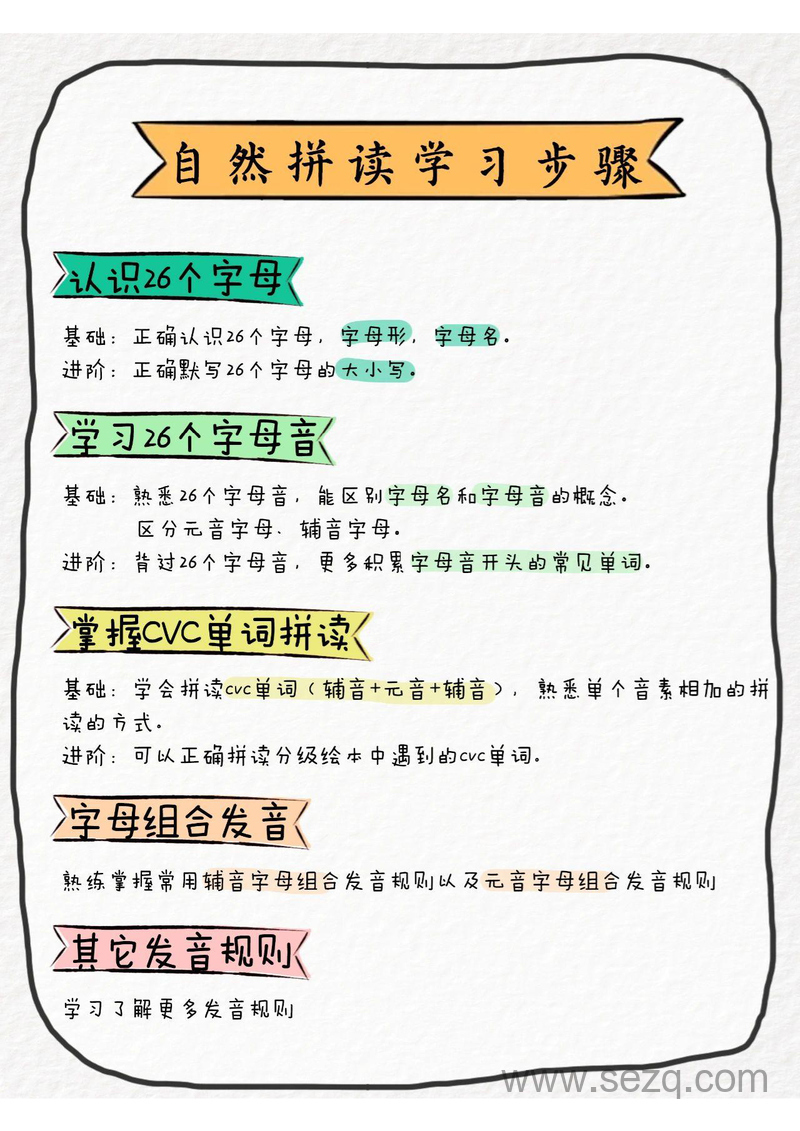 自然拼读学习步骤
认识26个字母
基础：正确认识26个字母，字母形，字母名。
进阶：正确默写26个字母的大小写。
学习26个字母音
基础：熟悉26个字母音，能区别字母名和字母音的概念。
区分元音字母、辅音字母。
进阶：背过26个字母音，更多积累字母音开头的常见单词。
掌握CVC单词拼读
基础：学会拼读cvc单词（辅音+元音+辅音），熟悉单个音素相加的拼
读的方式。
进阶：可以正确拼读分级绘本中遇到的cvc单词。
字母组合发音
熟练掌握常用辅音字母组合发音规则以及元音字母组合发音规则
其它发音规则
学习了解更多发音规则
www.sezq.com